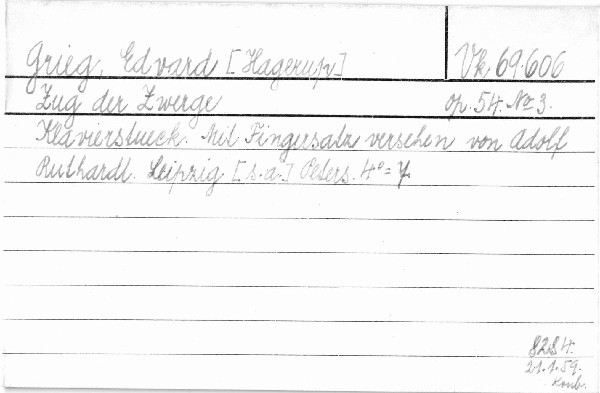 Grieg, Edvard [Hagerup] Vk 69.606
Zug der Zwerge op. 54. No 3.
Klavierstueck. Mit Fingersatz versehen von Adolf
Ruthardt. Leipzig [s.a.] Peters. 4° = 7.
21.1.59.